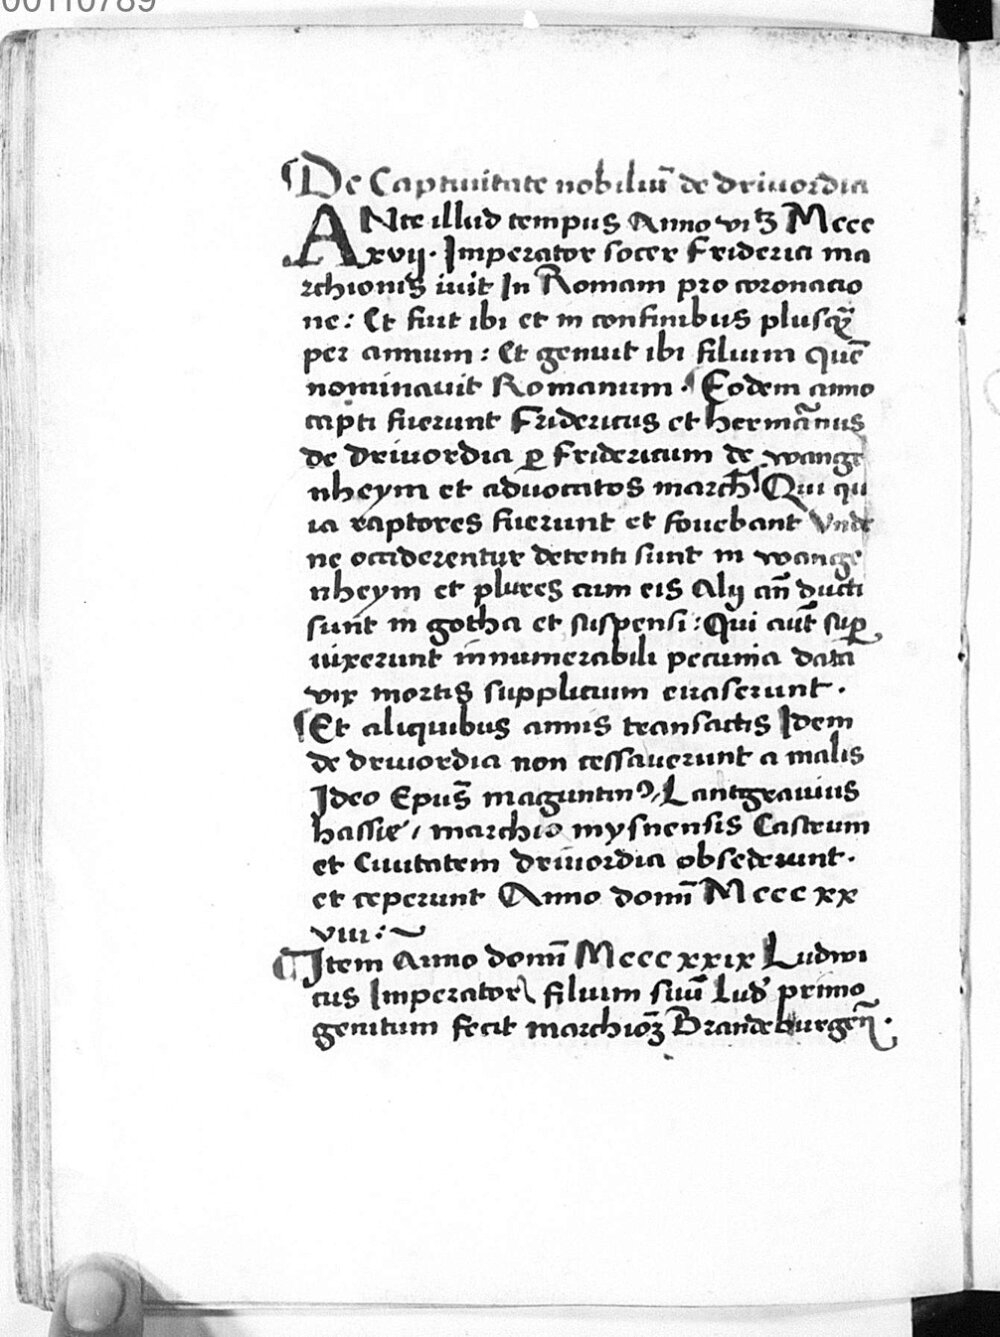 00110789
¶De Captiuitate nobiliu̅ de driuordia
ANte illud tempus Anno vitꝫ Mccc
xxvij. Imperator socer Friderici ma
rchionis iuit In Romam pro coronacio
ne: Et fuit ibi et in confinibus plusqꝫ
per annum: Et genuit ibi filium que̅
nominauit Romanum. ¶Eodem anno
capti fuerunt Fridericus et herma̅nus
de driuordia ꝑ Fridericum de wange
nheym et aduocatos march̅ Qui qu
ia raptores fuerunt et fouebant Vnde
ne occiderentur detenti sunt in wange
nheym et plures cum eis Alij au̅ ducti
sunt in gotha et suspensi: Qui aut̅ suꝑ
uixerunt innumerabili pecunia data
vix mortis supplicium euaserunt.
¶Et aliquibus annis transactis Idem
de driuordia non cessauerunt a malis
Ideo Epus̅ maguntinꝰ, Lantgrauius
hassie, marchio mysnensis Castrum
et Ciuitatem driuordia obsederunt.
et ceperunt Anno domi̅ Mccc xx
viii :~
¶Item Anno domi̅ Mccc xxix Ludwi
cus Imperator filium suu̅ Lud' primo
genitum fecit marchioꝫ Brandeburgen̅.